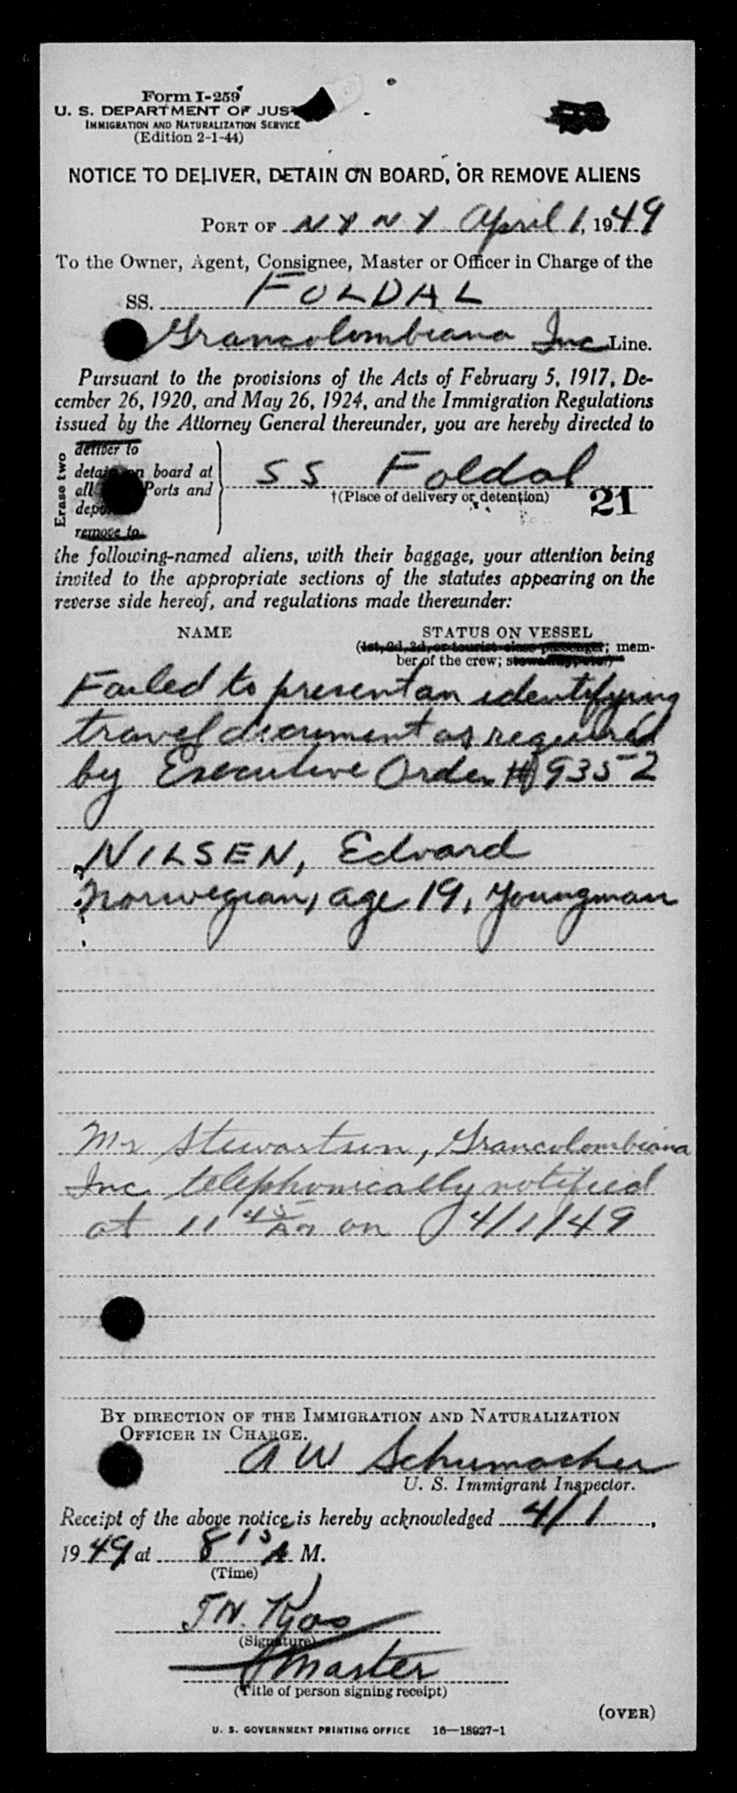 Form I-259
U. S. DEPARTMENT OF JUS
IMMIGRATION AND NATURALIZATION SERVICE
(Edition 2-1-44)
NOTICE TO DELIVER, DETAIN ON BOARD, OR REMOVE ALIENS
PORT OF NY NY April 1, 1949
To the Owner, Agent, Consignee, Master or Officer in Charge of the
SS. FOLDAL
Grancolombiana Inc Line.
Pursuant to the provisions of the Acts of February 5, 1917, De-
cember 26, 1920, and May 26, 1924, and the Immigration Regulations
issued by the Attorney General thereunder, you are hereby directed to
Erase two
deliver to
detain on board at
all Ports and
remove to
SS Foldal
†(Place of delivery or detention)
21
the following-named aliens, with their baggage, your attention being
invited to the appropriate sections of the statutes appearing on the
reverse side hereof, and regulations made thereunder:
NAME STATUS ON VESSEL
(1st, 2d, 3d, or tourist class passenger; mem-
ber of the crew;
Failed to present an identifying
travel document as required
by Executive Order # 9352
NILSEN, Edvard
Norwegian, age 19, Youngman
Mr Stewartson, Grancolombiana
Inc telephonically notified
at 11 45 AM on 4/1/49
BY DIRECTION OF THE IMMIGRATION AND NATURALIZATION
OFFICER IN CHARGE.
A W Schumacher
U. S. Immigrant Inspector.
Receipt of the above notice is hereby acknowledged 4/1,
1949 at 8 15 A M.
(Time)
(Signature)
Master
(Title of person signing receipt)
(OVER)
U. S. GOVERNMENT PRINTING OFFICE 16—18927-1